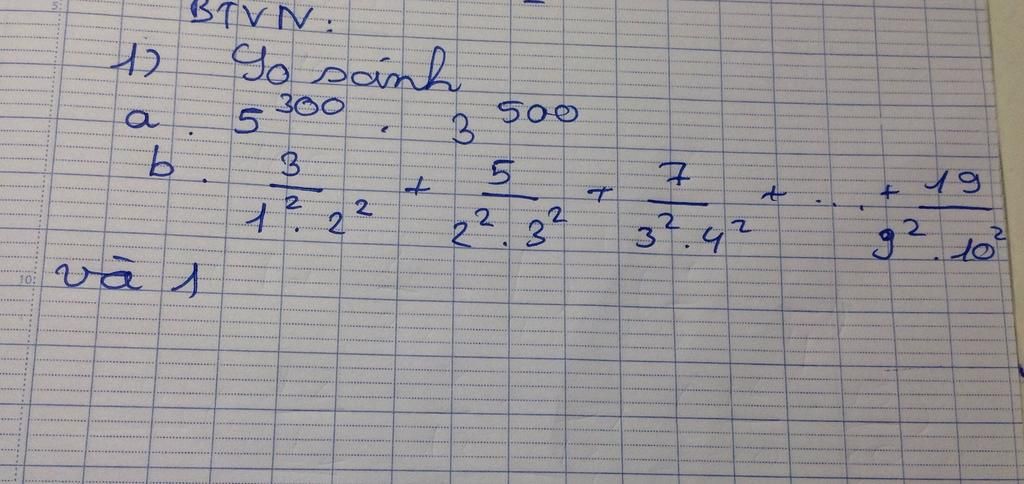 BTVN:
1) So sánh
a. 5^300 . 3^500
b. 3/(1^2 . 2^2) + 5/(2^2 . 3^2) + 7/(3^2 . 4^2) + .... + 19/(9^2 . 10^2)
và 1